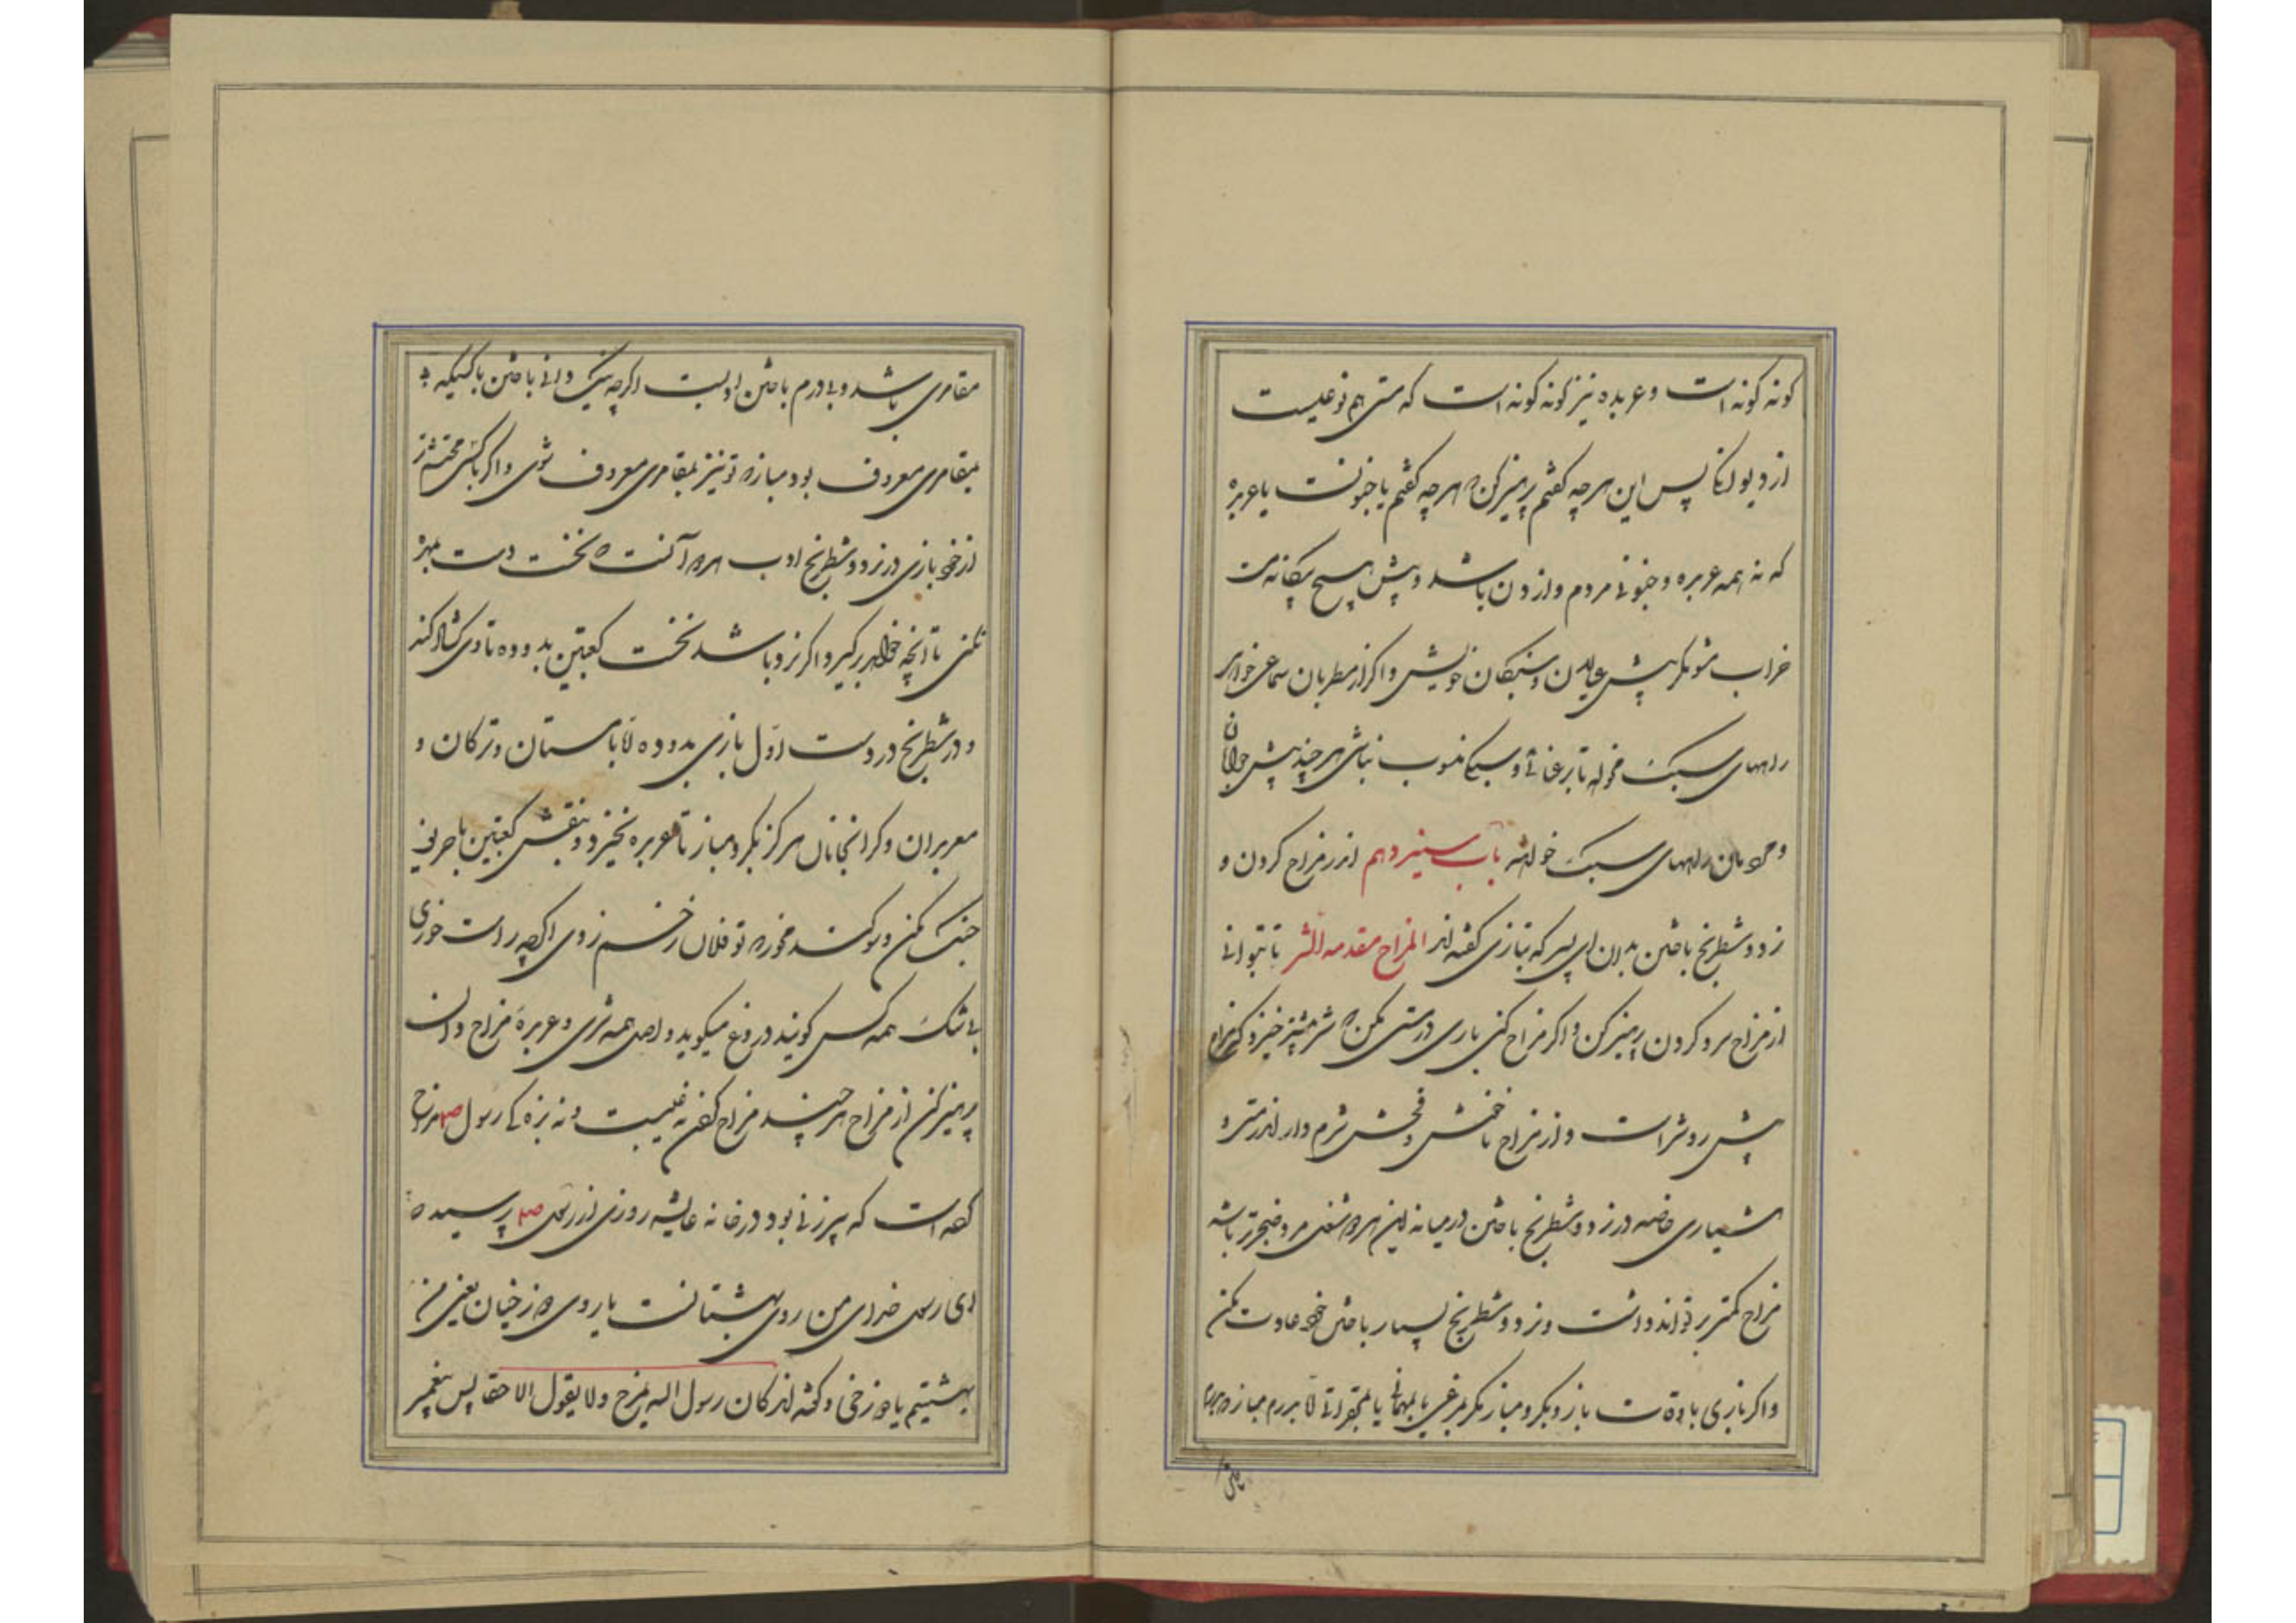 گونه گونه است و عربده نیز گونه گونه است که مستی هم نوعیست
از دیوانگی پس این هرچه گفتم پرهیز کن که هرچه گفتم یا جنونست یا عربده
که نه همه عربده و جنونی مردم وازدن باشد و پیش هیچ بیگانه مست
خراب مشو مگر پیش عیالان و بندگان خویش و اگر از مطربان سماعی خواهی
راههای سبک مخواه تا برعنائی و سبکی منسوب نباشی هرچند پیش جوانان
و جوانان راههای سبک خواهند باب سیزدهم اندر مزاح کردن و
نرد و شطرنج باختن بدان ای پسر که بتازی گفته‌اند المزاح مقدمه الشر تا بتوانی
از مزاح سرد کردن پرهیز کن و اگر مزاح کنی باری در مستی مکن که شر بیشتر خیزد که مزاح
پیش رو شر است و از مزاح ناخوش و فحش شرم دار اندر مستی و
هشیاری خاصه در نرد و شطرنج باختن در میانه این هر دو شغل مرد ضجرتر باشد
مزاح کمتر بر تواند داشت و نرد و شطرنج بسیار باختن خود عادت مکن
و اگر بازی باوقات باز و بگرو مباز مگر بمرغی یا بمهمانی یا بمحقراتی تا بدرم مباز که بدرم
باختن
مقامری باشد و بی درم باختن ادبست اگرچه نیک دانی باختن با کسیکه به
مقامری معروف بود مباز که تو نیز بمقامری معروف شوی و اگر با کسی محتشم‌تر
از خود بازی در نرد و شطرنج ادب هر دو آنست که نخست دست بمهره
نکنی تا آنچه خواهد برگیرد اگر نرد باشد نخست کعبتین بدو ده تا وی گشاد کند
و در شطرنج در دست اول بازی بدو ده اما با مستان و ترکان و
معربدان و گرانجانان هرگز بگرو مباز تا عربده نخیزد و بنقش کعبتین با حریف
جنک مکن و سوگند مخور که تو فلان زخم زدی اگرچه راست خوری
بی شک همه کس گویند دروغ میگوید و اصل همه شری و عربده مزاح دان
پرهیز کن از مزاح هرچند مزاح گفتن نه عیبست و نه بزه که رسول صلم مزاح
گفته است که پیرزنی بود در خانه عایشه روزی از رسول صلم پرسید که
ای رسول خدای من روی بهشتیانست یا روی دوزخیان یعنی من
بهشتیم یا دوزخی و گفته‌اند کان رسول الله یمزح و لا یقول الا حقا پس پیغمبر